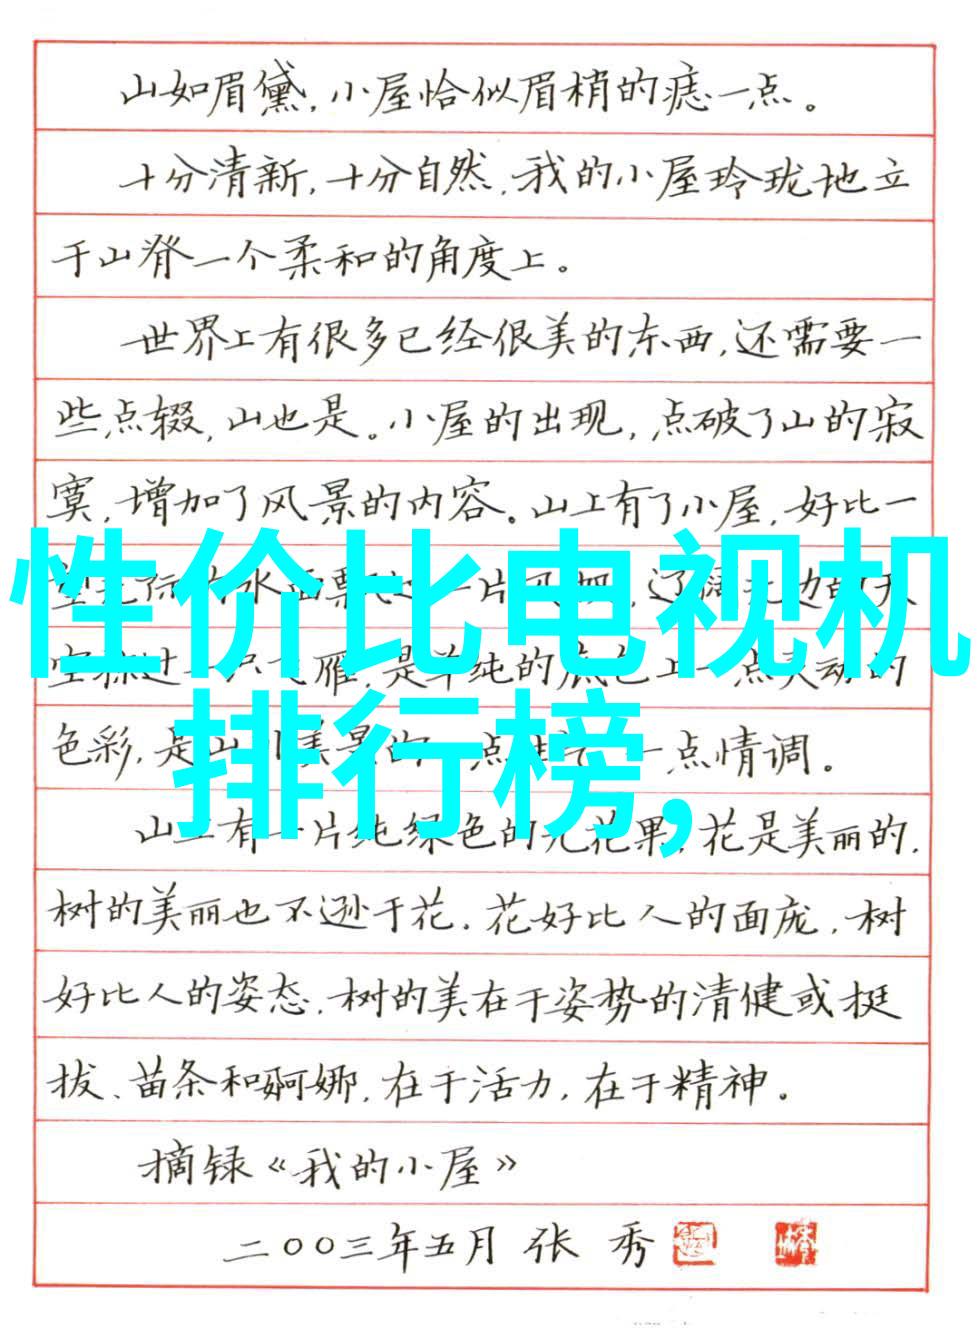 山如眉黛，小屋恰似眉梢的痣一点。
十分清新，十分自然，我的小屋玲珑地立
于山脊一个柔和的角度上。
世界上有很多已经很美的东西，还需要一
些点缀，山也是。小屋的出现，点破了山的寂
寞，增加了风景的内容。山上有了小屋，好比一
一片，辽阔无边的天
性价比电视机
雁，是单纯的底色上一点灵动的
色彩，是山美景的一点一点情调。
排行榜，
山上有一片纯绿色的无花果，花是美丽的，
树的美丽也不逊于花。花好比人的面庞，树
好比人的姿态。树的美在于姿势的清健或挺
拔、苗条和婀娜，在于活力，在于精神。
摘录《我的小屋》
二〇〇三年五月 张 秀